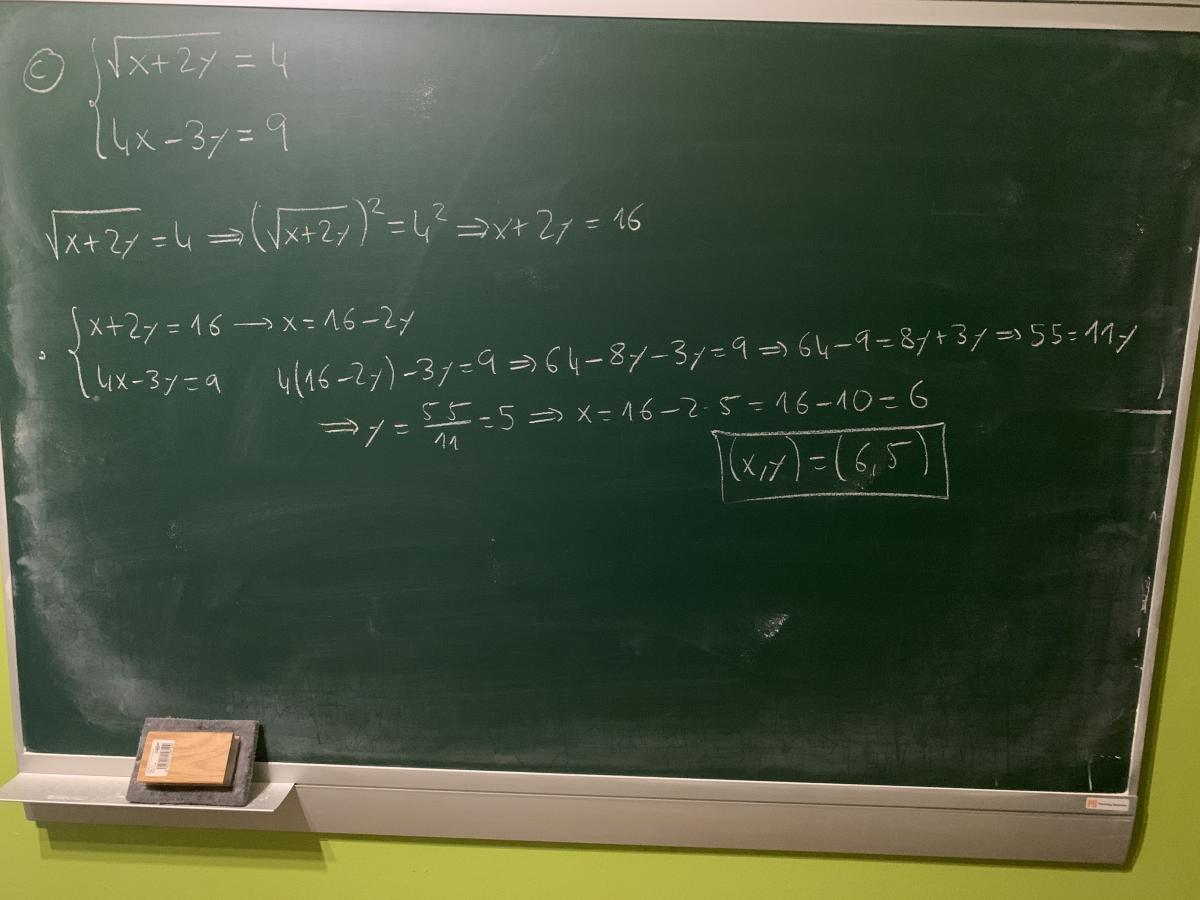 c) { √(x+2y) = 4
4x-3y = 9
√(x+2y) = 4 ⇒ (√(x+2y))² = 4² ⇒ x+2y = 16
{ x+2y = 16 → x = 16-2y
4x-3y = 9 4(16-2y)-3y = 9 ⇒ 64-8y-3y = 9 ⇒ 64-9 = 8y+3y ⇒ 55 = 11y
⇒ y = 55/11 = 5 ⇒ x = 16-2·5 = 16-10 = 6
(x,y) = (6,5)